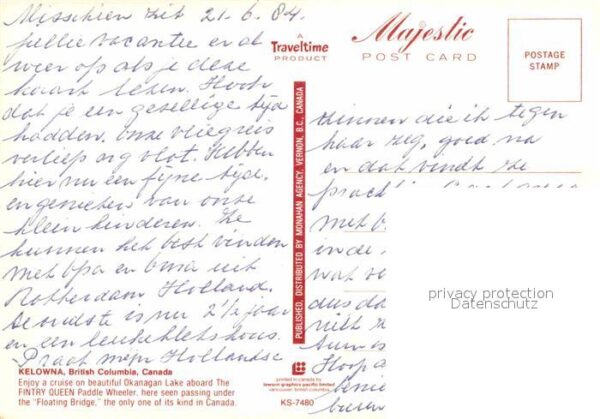 Misschien zit 21.6.84.
jullie vacantie er al
weer op als je deze
kaart lezen. Hoor
dat je een gezellige tijd
hadden, onze vliegreis
verliep erg vlot. Hebben
hier nu een fijne tijd,
en genieten van onze
kleinkinderen. Ze
kunnen het best vinden
met opa en oma uit
Rotterdam Holland.
De oudste is nu 2½ jaar
en een leuke kletskous.
Praat mijn Hollandse
KELOWNA, British Columbia, Canada
Enjoy a cruise on beautiful Okanagan Lake aboard The
FINTRY QUEEN Paddle Wheeler, here seen passing under
the "Floating Bridge," the only one of its kind in Canada.
A
Traveltime
PRODUCT
Majestic
POST CARD
POSTAGE
STAMP
PUBLISHED, DISTRIBUTED BY MONAHAN AGENCY, VERNON, B.C., CANADA
zinnen die ik tegen
haar zeg, goed na
en dat vindt ze
met
inde
wat
dus da
niet
Hoop
privacy protection
Datenschutz
printed in canada by
lawson graphics pacific limited
vancouver, british columbia
KS-7480